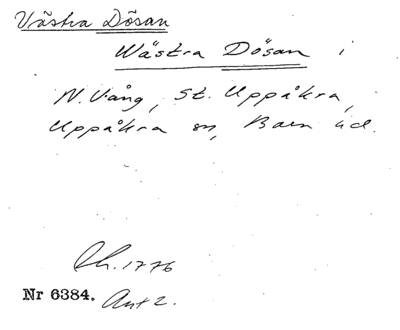 Västra Dösan
Wästra Dösan i
N. Vång, St. Uppåkra,
Uppåkra sn, Bara hd.
Ch. 1776
Nr 6384. Akt 2.